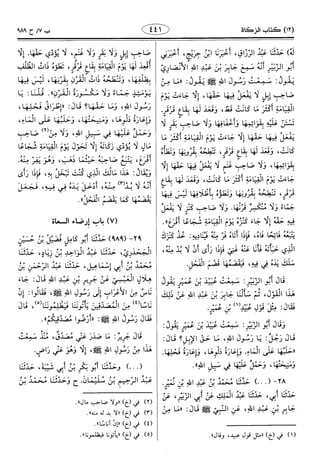 (١٢) كتاب الزكاة
٤٤١
ب ٧/ ح ٩٨٩
له) حدثنا عبد الرزاق، أخبرنا ابن جريج، أخبرني
أبو الزبير أنه سمع جابر بن عبد الله الأنصاري
يقول: سمعت رسول الله ﷺ يقول: «ما من
صاحب إبل لا يفعل فيها حقها، إلا جاءت يوم
القيامة أكثر ما كانت قط، وقعد لها بقاع قرقر،
تستن عليه بقوائمها وأخفافها ولا صاحب بقر لا
يفعل فيها حقها إلا جاءت يوم القيامة أكثر ما
كانت، وقعد لها بقاع قرقر، تنطحه بقرونها وتطؤه
بقوائمها، ولا صاحب غنم لا يفعل فيها حقها إلا
جاءت يوم القيامة أكثر ما كانت، وقعد لها بقاع
قرقر، تنطحه بقرونها وتطؤه بأظلافها ليس فيها
جماء ولا منكسر قرنها. ولا صاحب كنز لا يفعل
فيه حقه إلا جاء كنزه يوم القيامة شجاعا أقرع،
يتبعه فاتحا فاه، فإذا أتاه فر منه فيناديه: خذ كنزك
الذي خبأته فأنا عنه غني فإذا رأى أن لا بد منه،
سلك يده في فيه، فيقضمها قضم الفحل.
قال أبو الزبير: سمعت عبيد بن عمير يقول
هذا القول، ثم سألنا جابر بن عبد الله عن ذلك
فقال: مثل قول عبيد(١) بن عمير.
وقال أبو الزبير: سمعت عبيد بن عمير يقول:
قال رجل: يا رسول الله، ما حق الإبل؟ قال:
«حلبها على الماء، وإعارة دلوها، وإعارة فحلها،
ومنيحتها، وحمل عليها في سبيل الله».
٢٨- (...) حدثنا محمد بن عبد الله بن نمير،
حدثنا أبي، حدثنا عبد الملك عن أبي الزبير، عن
جابر بن عبد الله، عن النبي ﷺ قال: «ما من
صاحب إبل ولا بقر ولا غنم، لا يؤدي حقها، إلا
أقعد لها يوم القيامة بقاع قرقر، تطؤه ذات الظلف
بظلفها، وتنطحه ذات القرن بقرنها، ليس فيها
يومئذ جماء ولا مكسورة القرن». قلنا: يا
رسول الله، وما حقها؟ قال: «إطراق فحلها،
وإعارة دلوها، ومنيحتها، وحلبها على الماء،
وحمل عليها في سبيل الله، ولا من(٢) صاحب
مال لا يؤدي زكاته إلا تحول يوم القيامة شجاعا
أقرع، يتبع صاحبه حيثما ذهب، وهو يفر منه.
ويقال: هذا مالك الذي كنت تبخل به، فإذا رأى
أنه لا بد منه(٣)، أدخل يده في فيه، فجعل
يقضمها كما يقضم الفحل».
(٧) باب إرضاء السعاة
٢٩- (٩٨٩) حدثنا أبو كامل فضيل بن حسين
الجحدري، حدثنا عبد الواحد بن زياد، حدثنا
محمد بن أبي إسماعيل، حدثنا عبد الرحمن بن
هلال العبسي عن جرير بن عبد الله قال: جاء
ناس من الأعراب إلى رسول الله ﷺ، فقالوا: إن
ناسا(٤) من المصدقين يأتوننا فيظلموننا(٥)، قال:
فقال رسول الله ﷺ: «أرضوا مصدقيكم».
قال جرير: ما صدر عني مصدق، منذ سمعت
هذا من رسول الله ﷺ إلا وهو عني راض.
(...) وحدثنا أبو بكر بن أبي شيبة، حدثنا
عبد الرحيم بن سليمان. ح وحدثنا محمد بن
(١) في (خ) «مثل قول عبيد، وقال».
(٢) في (خ) «ولا صاحب مال».
(٣) في (خ) «لا بد له منه».
(٤) في (خ) «إن أناسا».
(٥) في (خ) «يأتونا فيظلمونا».